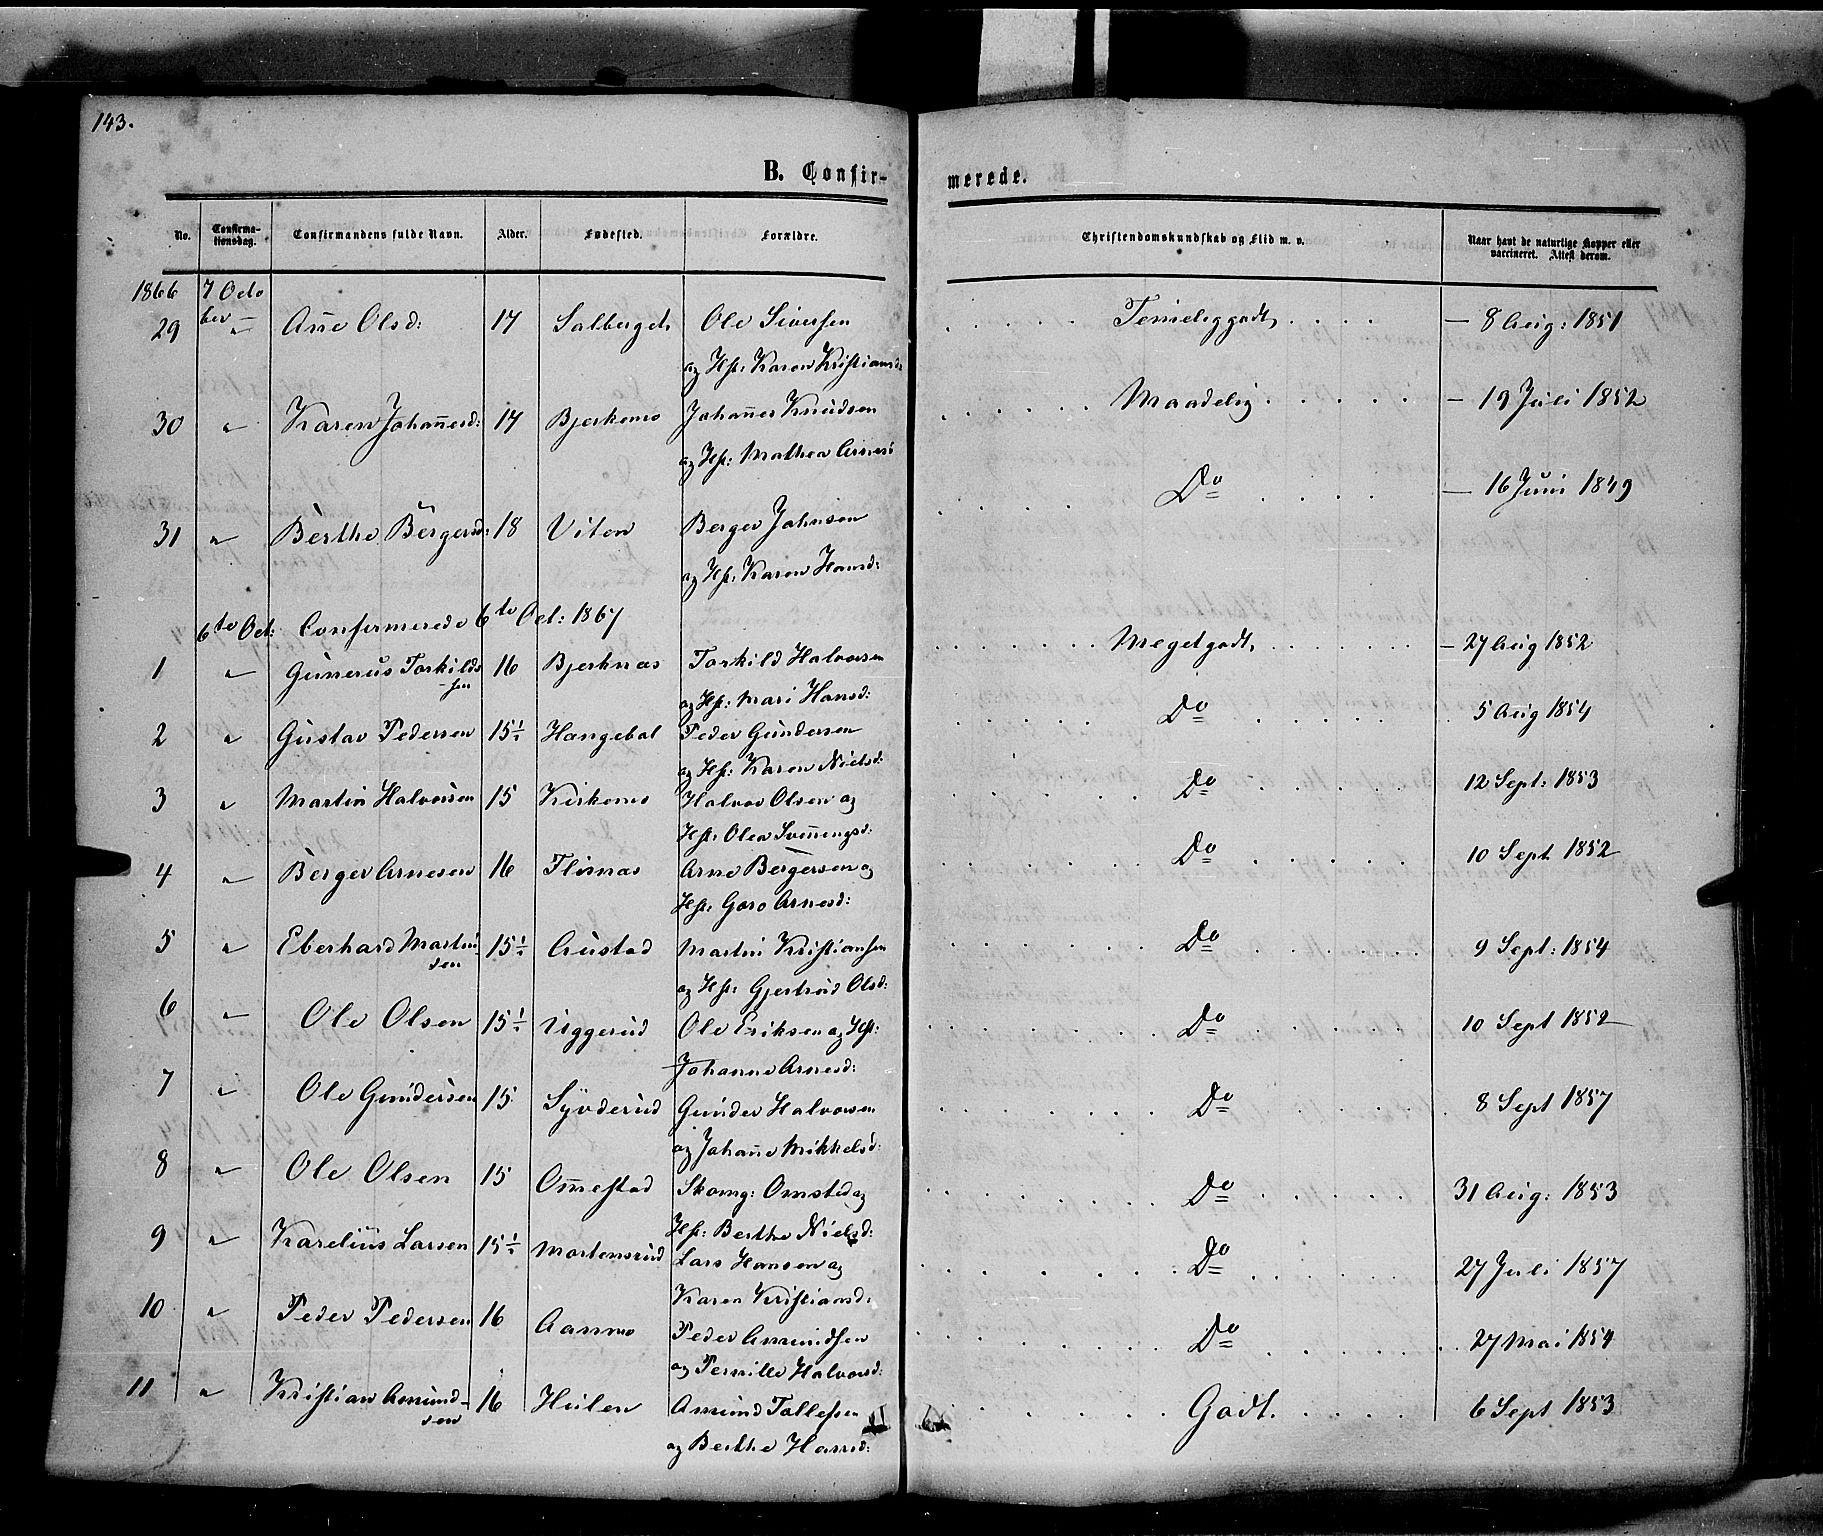 143.
B. Confir-
merede.
No. Confirma-
tionsdag. Confirmandens fulde Navn. Alder. Fødested. Forældre. Christendomskundskab og Flid m. v. Naar havt de naturlige Kopper eller
vaccineret. Attest derom.
1866 7 Octo
ber
29 " Ane Olsd: 17 Ole Siversen Temeliggodt — 8 Aug: 1851
og Hst: Karen Kristiansd:
30 " Karen Johannesd: 17 Bjerkemo Johannes Knudsen Maadelig — 19 Juli 1852
og Hst: Mathea Arnesd
31 " Berthe Bergersd: 18 Viton Berger Johnsen Do — 16 Juni 1849
og Hst: Karen Hansd:
6te Oct: Confirmerede 6te Oct: 1867
1 " Gunerus Torkilds 16 Bjerknæs Torkild Halvorsen Megetgodt — 27 Aug 1852
-sen og Hst: Mari Hansd:
2 " Gustav Pedersen 15½ Hangebøl Peder Gundersen Do 5 Aug 1854
og Hst: Karen Nielsd:
3 " Martin Halvorsen 15 Kirkemo Halvor Olsen og Do 12 Sept: 1853
Hst: Olea Svennengsd:
4 " Berger Arnesen 16 Flisnæs Arne Bergersen og Do 10 Sept 1852
Hst: Goro Arnesd:
5 " Eberhard Martin 15½ Austad Martin Kristiansen Do 9 Sept: 1854
sen og Hst: Gjertrud Olsd:
6 " Ole Olsen 15½ Uggerud Ole Eriksen og Hst: Do 10 Sept 1852
Johanne Arnesd:
7 " Ole Gundersen 15 Syvderud Gunder Halvorsen Do 8 Sept 1857
og Johane Mikkelsd:
8 " Ole Olsen 15 Ommestad Skomg: Omsted og Do 31 Aug: 1853
Hst: Berthe Nielsd:
9 " Karelius Larsen 15½ Mortensrud Lars Hansen og Do 27 Juli 1857
Karen Kristiansd:
10 " Peder Pedersen 16 Aamo Peder Amundsen Do 27 Mai 1854
og Pernille Halvorsd:
11 " Kristian Amund- 16 Hulen Amund Tollefsen Godt. 6 Sept 1853
sen og Berthe Hansd: